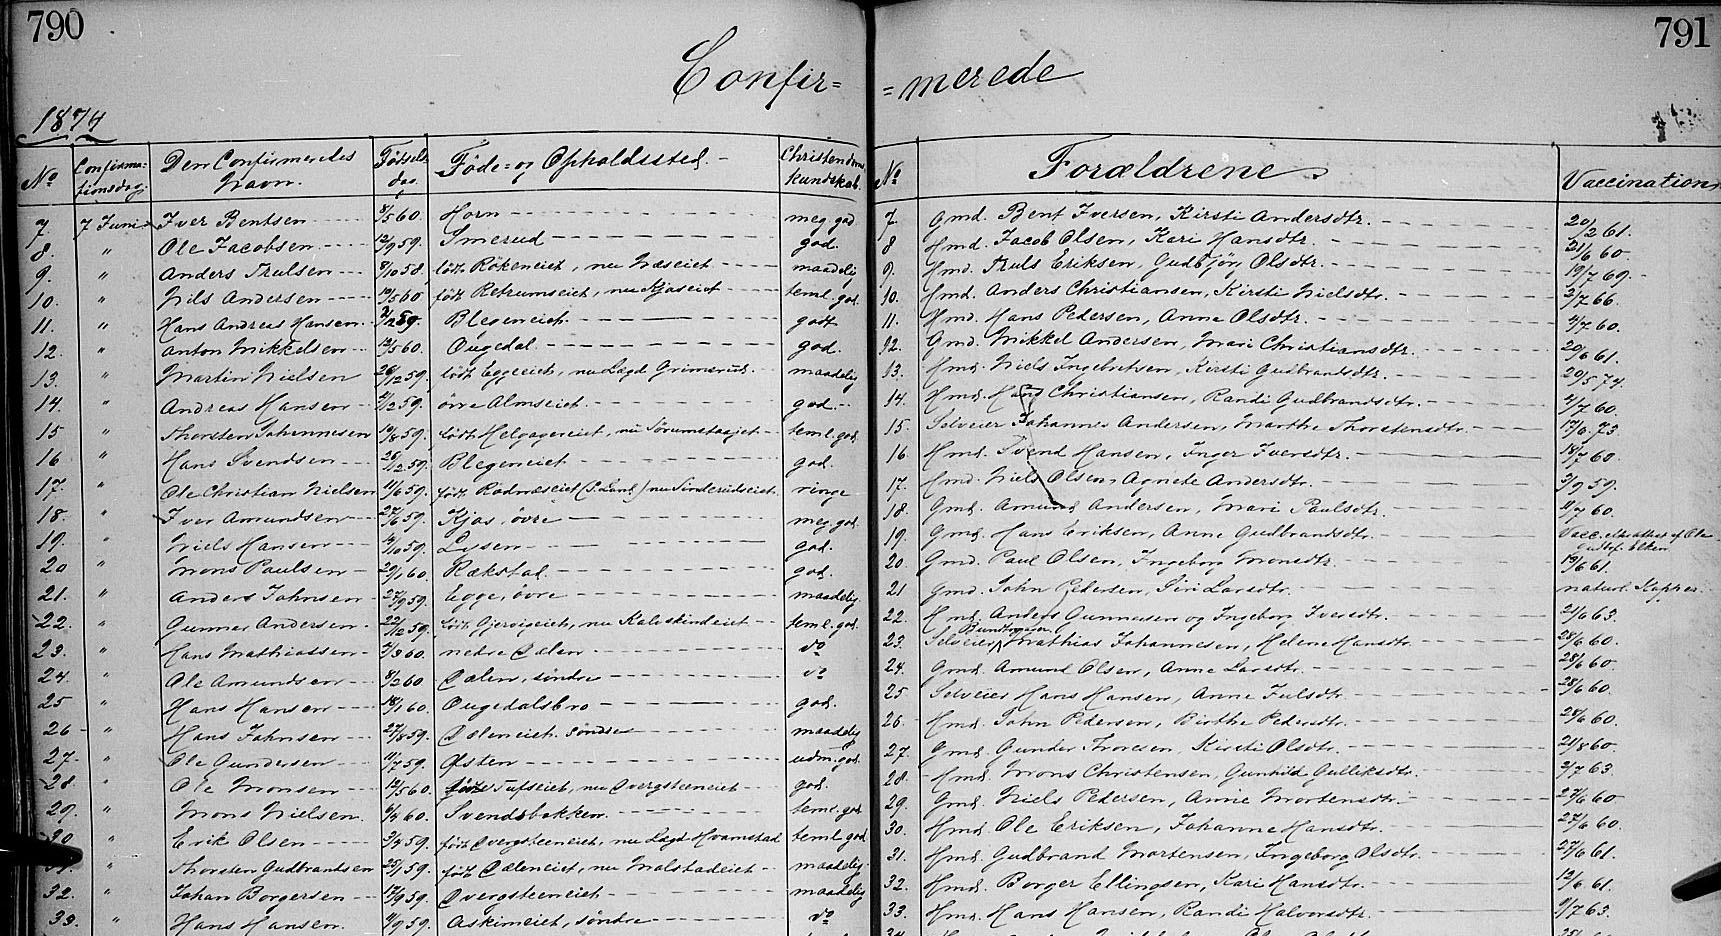 790
791
Confir=
=merede
1874
No
Confirma=
tionsdag.
Den Confirmeredes
Navn.
Fødsels
dag.
Føde= og Opholdssted.
Christendoms
kundskab.
No
Forældrene
Vaccination.
7. 7 Juni Iver Bentsen 3/5 60. Horn meg. god 7. Gmd. Bent Iversen, Kirsti Andersdtr. 20/2 61.
8. " Ole Jacobsen 12/9 59. Smerud god. 8 Hmd. Jacob Olsen, Kari Hansdtr. 21/6 60.
9. " Anders Trulsen 8/10 58. født Røkeneiet, nu Næseiet maadelig 9. Hmd. Truls Eriksen, Gudbjør Olsdtr. 19/7 69.
10. " Nils Andersen 19/5 60 født Retrumseiet, nu Kjoseiet teml. god. 10. Hmd. Anders Christiansen, Kirsti Nielsdtr. 2/7 66.
11. " Hans Andreas Hansen Blegeneiet godt 11. Hmd. Hans Pedersen, Anne Olsdtr. 4/7 60.
12. " Anton Mikkelsen 12/5 60. Ougedal god. 12. Gmd. Mikkel Andersen, Mari Christiansdtr. 20/6 61.
13. " Martin Nielsen 26/12 59. født Eggeeiet, nu Lagd Grimsrud. maadelig 13. Hmd. Niels Ingebretsen, Kirsti Gudbrandsdtr. 20/5 74.
14. " Andreas Hansen 2/12 59. øvre Almseiet god. 14. Hmd. Hans Christiansen, Randi Gudbrandsdtr. 4/7 60.
15 " Thorsten Johannesen 19/8 59. født Helgagereiet, nu teml. god 15 Selveier Johannes Andersen, Marthe Thorstensdtr. 17/6 73.
16 " Hans Svendsen 26/12 59. Blegeneiet god. 16 Hmd. Svend Hansen, Inger Iversdtr. 18/7 60.
17. " Ole Christian Nielsen 11/6 59. født Rodnæseiet (S. Land) nu Sinderudseiet ringe 17. Hmd. Niels Olsen, Agnete Andersdtr. 3/9 59.
18. " Iver Amundsen 27/6 59. Kjos, øvre meg. god. 18. Gmd. Amund Andersen, Mari Paulsdtr. 11/7 60.
19. " Niels Hansen 4/10 59. Lysen god. 19. Gmd. Hans Eriksen, Anne Gudbrandsdtr. Vacc. attest af Ole
20 " Mons Paulsen 29/1 60. Rækstal. god. 20 Gmd. Paul Olsen, Ingeborg Monsdtr. 19/6 61.
21. " Anders Johnsen 27/9 59. Egge, øvre maadelig. 21 Gmd. John Pedersen, Siri Larsdtr. naturl. Kopper.
22. " Gunner Andersen 22/12 59. født Gjervigeiet, nu Kalvskindeiet teml. god. 22. Hmd. Anders Gunnersen og Ingeborg Iversdtr. 21/6 63.
23. " Hans Mathiassen 7/3 60. nedre Dælen do 23. Selveier Mathias Johannesen, Helene Hansdtr. 28/6 60.
24. " Ole Amundsen 8/2 60 Dælen, søndre do 24. Gmd. Amund Olsen, Anne Larsdtr. 28/6 60.
25 " Hans Hansen 18/1 60. Ougedalsbro god. 25 Selveier Hans Hansen, Anne Julsdtr. 28/6 60.
26 " Hans Johnsen 27/8 59. Dæleneiet, søndre maadelig 26. Hmd. John Pedersen, Birthe Pedersdtr. 28/6 60.
27. " Ole Gundersen 11/7 59. Østen udm. god. 27. Gmd. Gunder Troresen, Kirsti Olsdtr. 21/8 60.
28. " Ole Monsen 12/5 60. født Tufseiet, nu Dvergsteneiet god. 28. Hmd. Mons Christensen, Gunhild Gulliksdtr. 2/7 63.
29. " Mons Nielsen 6/4 60. Svendsbakken teml. god 29. Gmd. Niels Pedersen, Anne Mortensdtr. 27/6 60
30 " Erik Olsen 3/4 59. født Dvergsteneiet, nu Lagd Hvamstad teml. god 30. Hmd. Ole Eriksen, Johanne Hansdtr. 27/6 60.
31. " Thorsten Gudbrandsen 25/1 59. født Dæleneiet, nu Malstadeiet maadelig 31. Hmd. Gudbrand Mortensen, Ingeborg Olsdtr. 27/6 61.
32. " Johan Borgersen 17/9 59. Dvergsteneiet maadelig 32. Hmd. Borger Ellingsen, Kari Hansdtr. 12/6 61.
33. " Hans Hansen. 4/9 59. Askimeiet, søndre do 33. Hmd. Hans Hansen, Randi Halvorsdtr. 9/7 63.